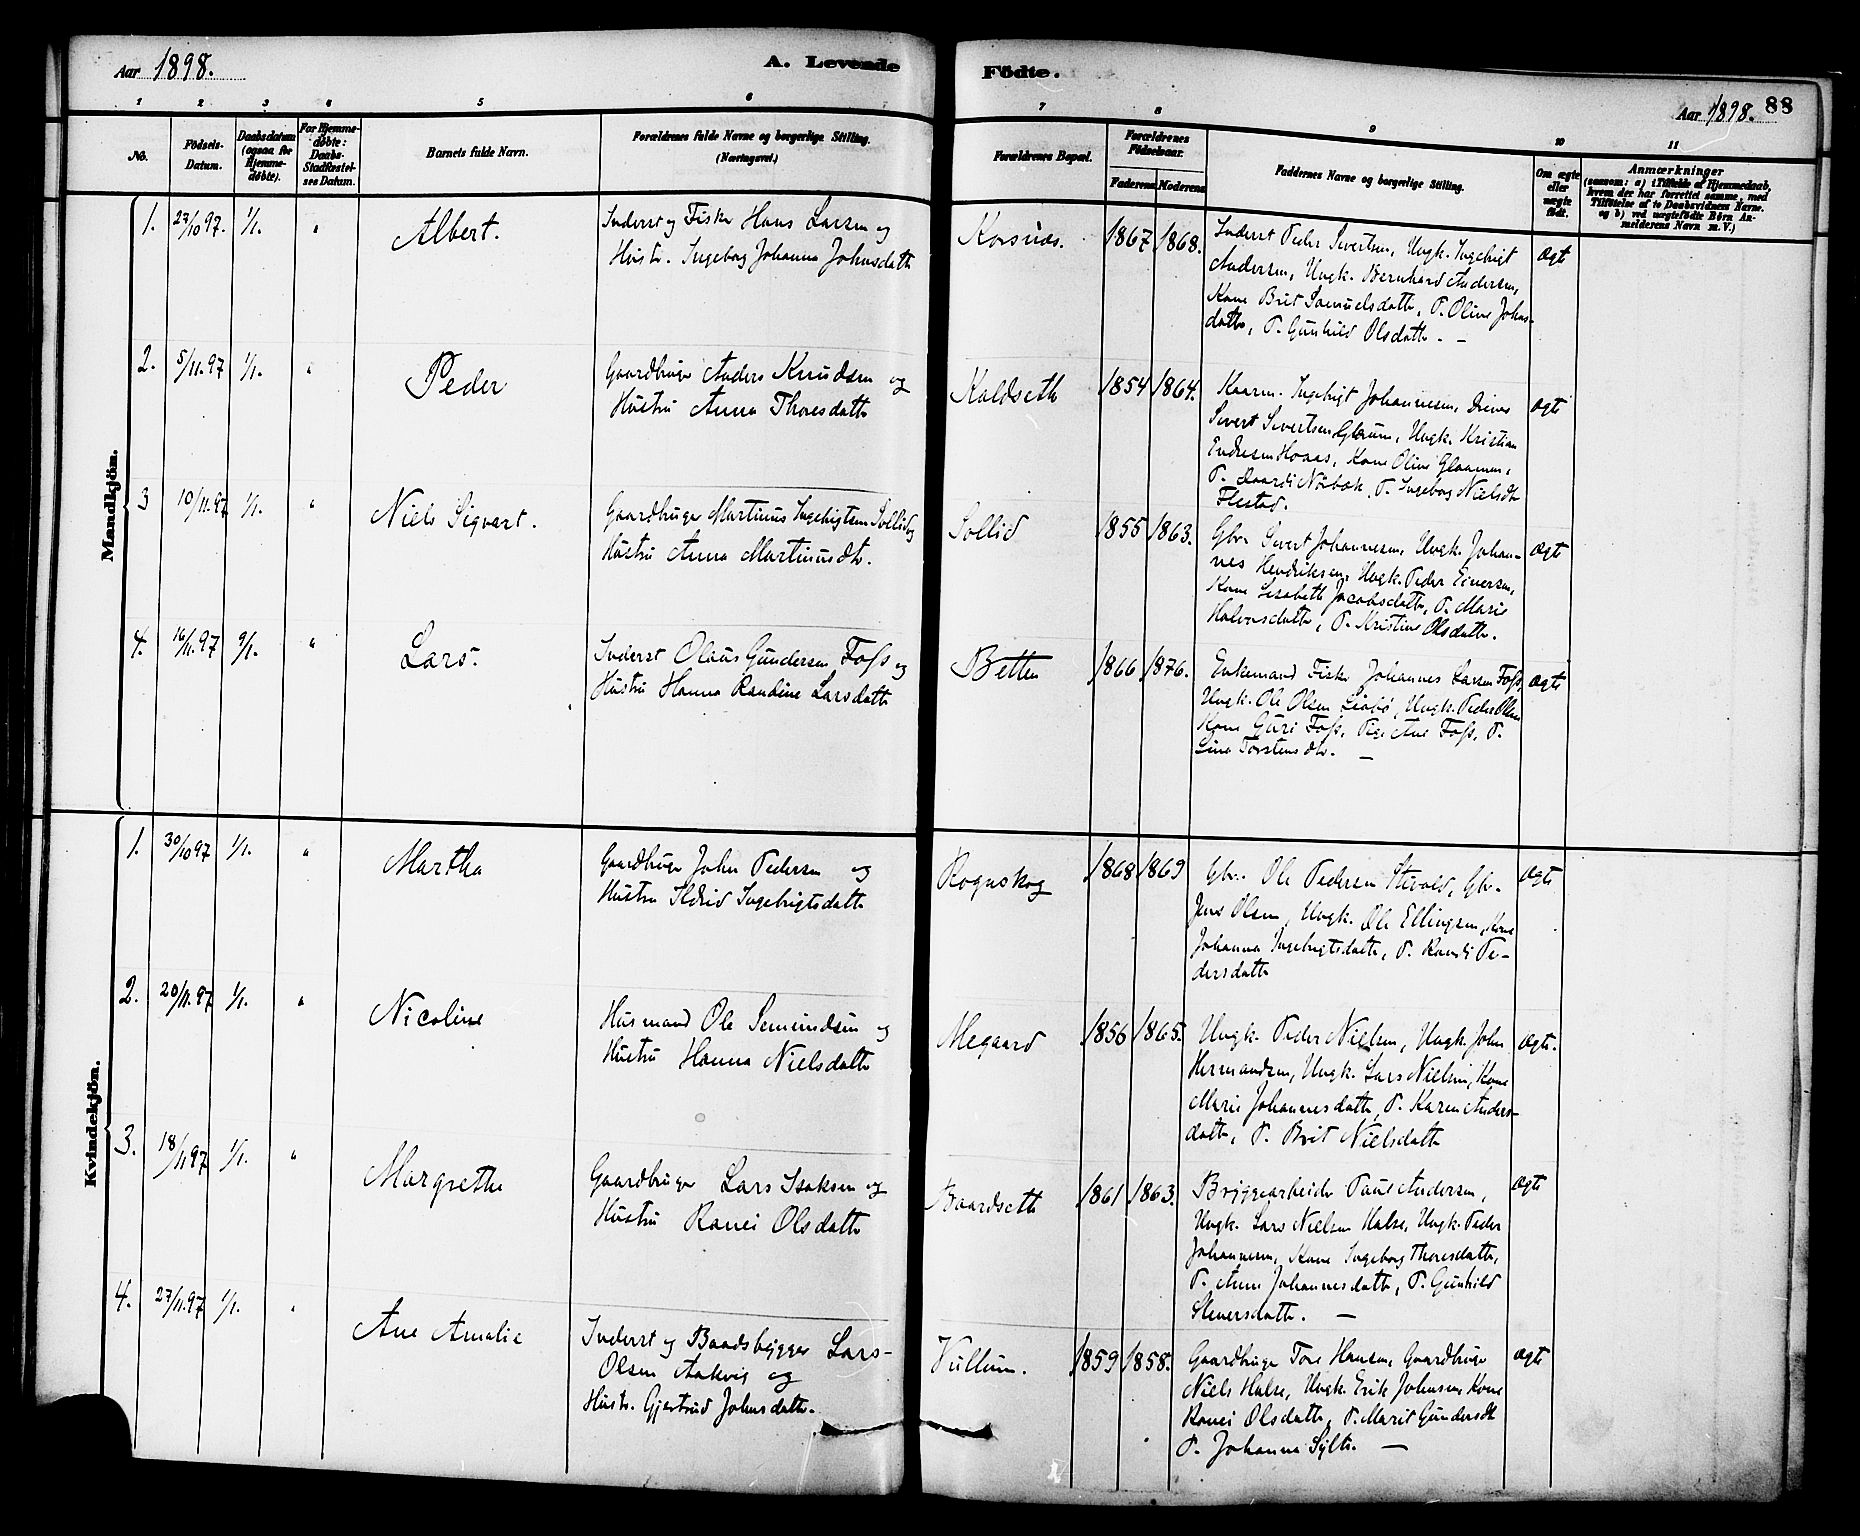 Aar 1898.
A. Levende Födte.
Aar 1898. 88
1 2 3 4 5 6 7 8 9 10 11
No.
Födsels-Datum.
Daabsdatum (ogsaa for Hjemme-döbte).
For Hjemme-döbte: Daabs-Stadfæstel-ses Datum.
Barnets fulde Navn.
Forældrenes fulde Navne og borgerlige Stilling. (Næringsvei.)
Forældrenes Bopæl.
Forældrenes Födselsaar.
Faderens Moderens
Faddernes Navne og borgerlige Stilling.
Om ægte eller uægte födt.
Anmærkninger
(saasom: a) i Tilfælde af Hjemmedaab,
hvem der har forrettet samme, med
Tilföielse af to Daabsvidners Navne.
og b) ved uægtefödte Börn An-
melderens Navn m. V.)
Mandkjön.
1. 27/10 97. 1/1. " Albert.
Inderst og Fisker Hans Larsen og
Hustr. Ingeborg Johanna Johnsdatt
Korsnæs. 1867 1868.
Inderst Peder Sivertsen, Ungk. Ingebrigt
Andersen, Ungk. Bernhard Andersen,
Kone Brit Samuelsdatt, P. Oline Johns-
datt, P. Gunhild Olsdatt. —
Ægt
2. 5/11. 97 1/1. " Peder
Gaardbruger Anders Knudsen og
Hustru Anna Thoresdatt
Koldseth 1854 1864.
Kaarm. Ingebrigt Johannesen, Dreng
Sivert Sivertsen Glærum, Ungk. Kristian
Endresen Honas, Kone Oline Glaamen,
P. Norbæk, P. Ingeborg Nielsdt
Flestad.
Ægt
3 10/11. 97 1/1. " Niels Sigvart.
Gaardbruger Martinus Ingebrigtsen Sollid og
Hustru Anna Martinusdt.
Sollid 1855 1863.
Gbr. Sivert Johannesen, Ungk. Johan-
nes Hendriksen, Ungk. Peder Einersen,
Kone Lisabeth Jacobsdatt, P. Marie
Halvorsdatt, P. Kristine Olsdatt.
Ægt
4. 16/11. 97 9/1. " Lars.
Inderst Olaus Gundersen Foss og
Hustru Hanna Randine Larsdatt
Betten 1866 1876.
Enkemand Fisker Johannes Larsen Foss,
Ungk. Ole Olsen Ungk. Peder Olsen
Kone Guri Foss, Pige Ane Foss, P.
Lina Torstensdtr. —
Ægt
Kvindekjön.
1. 30/10 97 1/1. " Martha
Gaardbruger John Pedersen og
Hustru Sldrid Ingebrigtsdatt
Rognskog 1868 1869
Gbr. Ole Pedersen Gbr.
Jens Olsen, Ungk. Ole Ellingsen, Kone
Johanna Ingebrigtsdatt, P. Randi Pe-
dersdatt
Ægt
2. 20/11. 97 1/1. " Nicoline
Husmand Ole Semundsen og
Hustru Hanna Nielsdatt
Megaard 1856 1865.
Ungk. Peder Nielsen, Ungk. John
Hermandsen, Ungk. Lars Nielsen, Kone
Marie Johannesdatt, P. Karen Anders-
datt, P. Brit Nielsdatt
Ægt.
3. 18/11 97 1/1. " Margrethe
Gaardbruger Lars Isaksen og
Hustru Ranei Olsdatt
Baardseth 1861 1863.
Bryggearbeider Paul Andersen,
Ungk. Lars Nielsen Halse, Ungk. Peder
Johannesen, Kone Ingeborg Thoresdatt,
P. Anne Johannesdatt, P. Gunhild
Steversdatt. —
Ægt
4. 27/11. 97 1/1. " Ane Amalie
Inderst og Baadsbygger Lars
Olsen Aakvig og
Hustr. Gjertrud Johnsdatt.
Vullum. 1859 1858.
Gaardbruger Tore Hansen, Gaardbruger
Niels Halse, Ungk. Erik Johnsen, Kone
Ranei Olsdatt, P. Marit Gundersdt
P. Johanna Sylte. —
Ægt